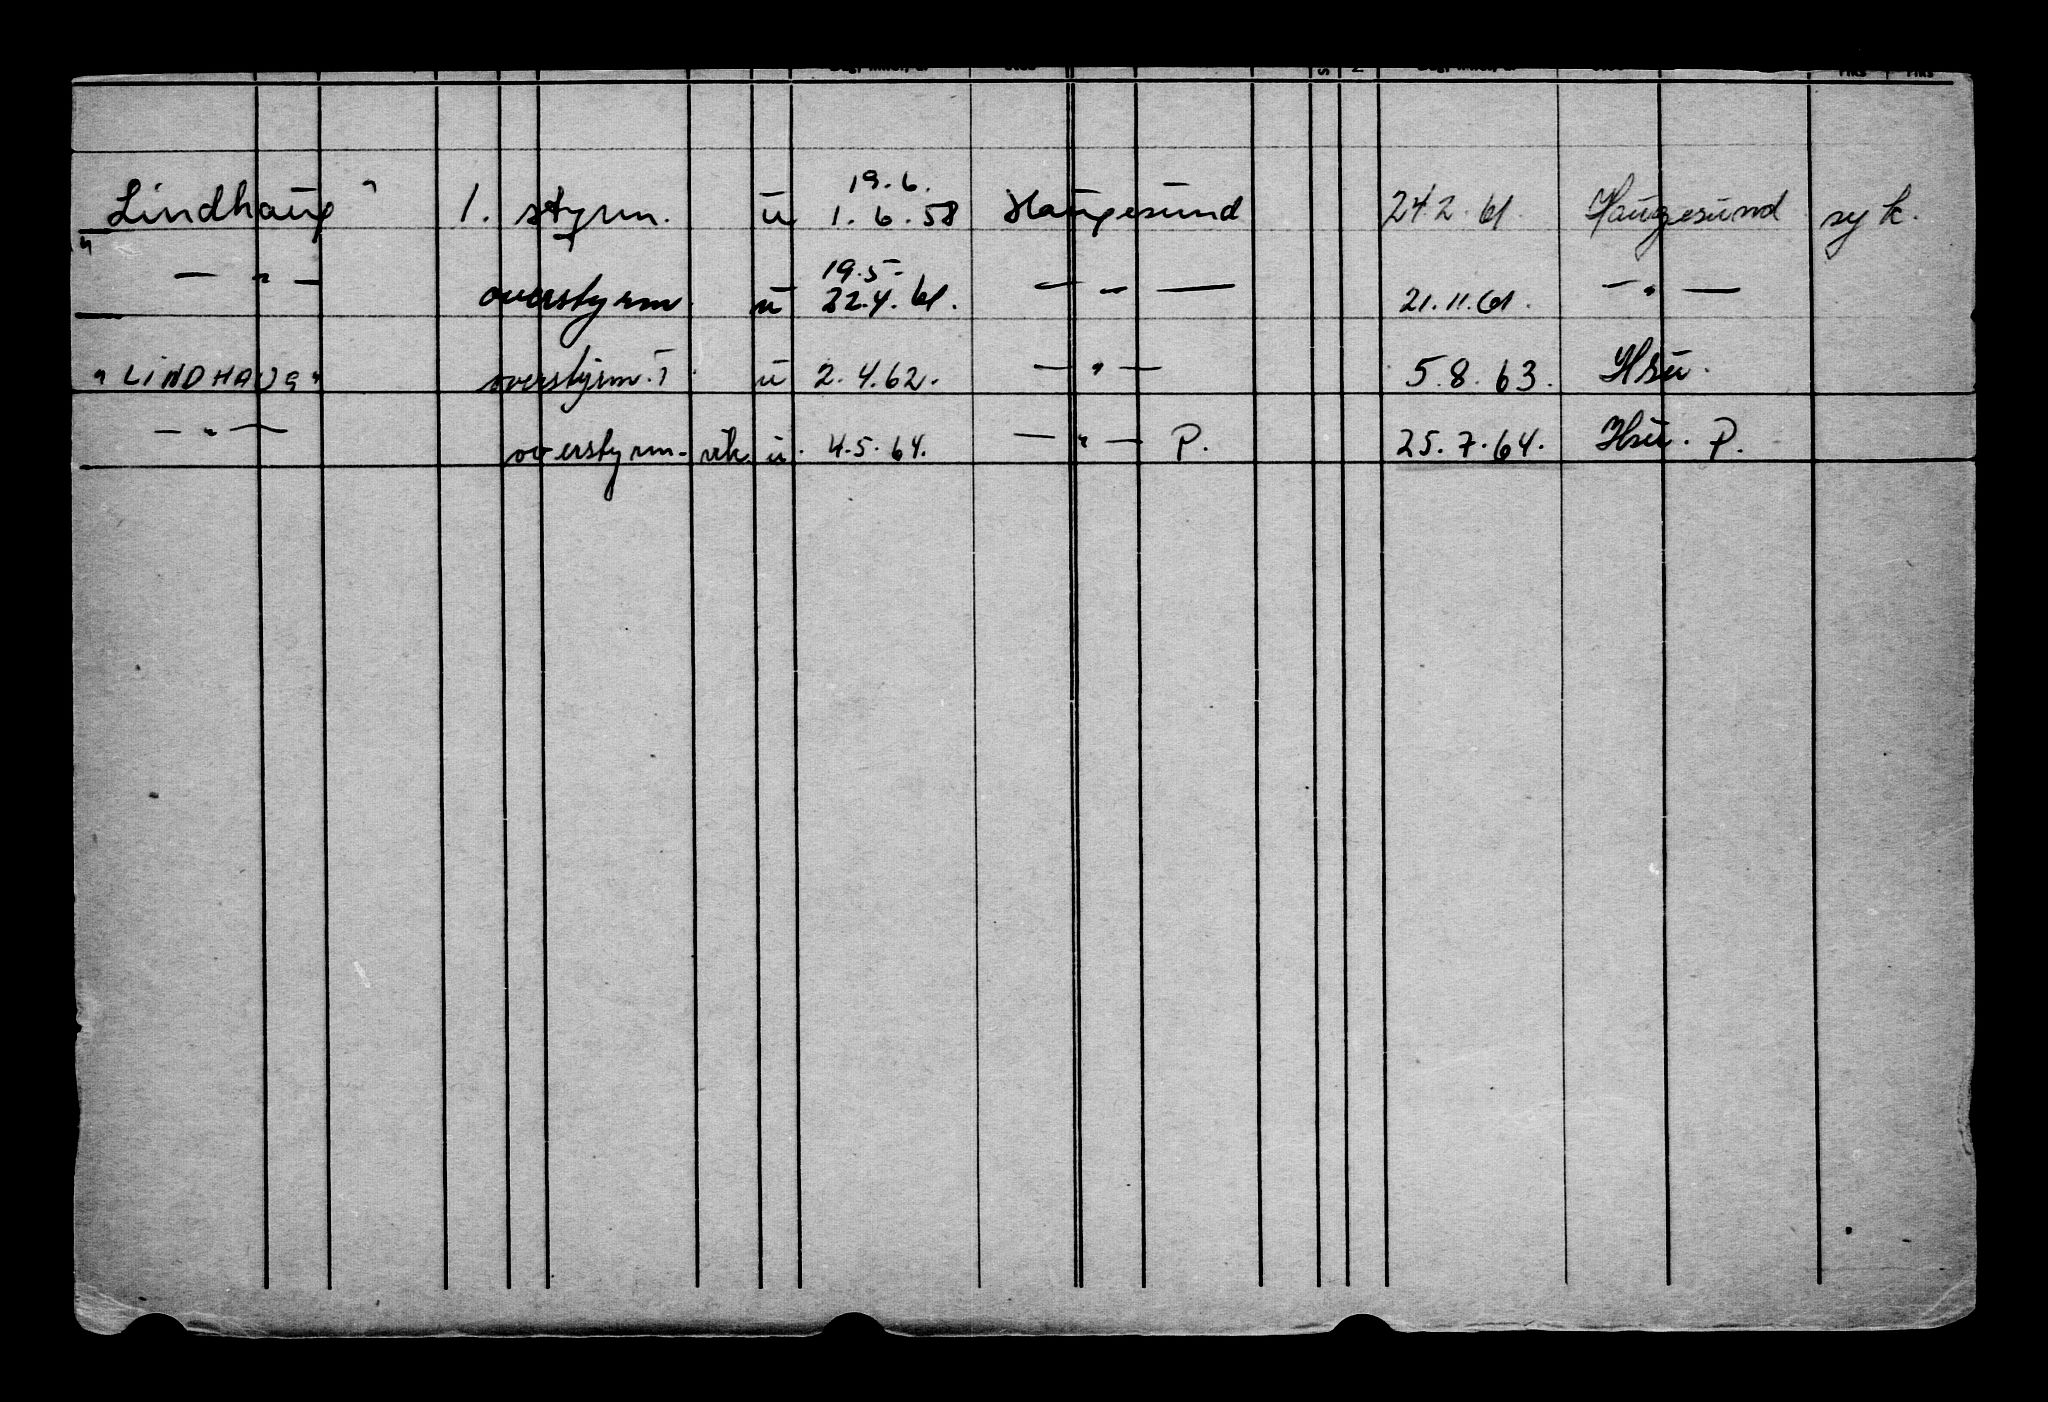 19.6.
"Lindhaug" 1. styrm. u 1.6.58 Haugesund 24.2.61. Haugesund syk.
19.5.
— " — overstyrm. u 22.4.61. — " — 21.11.61. — " —
"LINDHAUG" overstyrm. u 2.4.62. — " — 5.8.63. Hsu.
— " — overstyrm. vik. u. 4.5.64. — " — P. 25.7.64. Hsu. P.